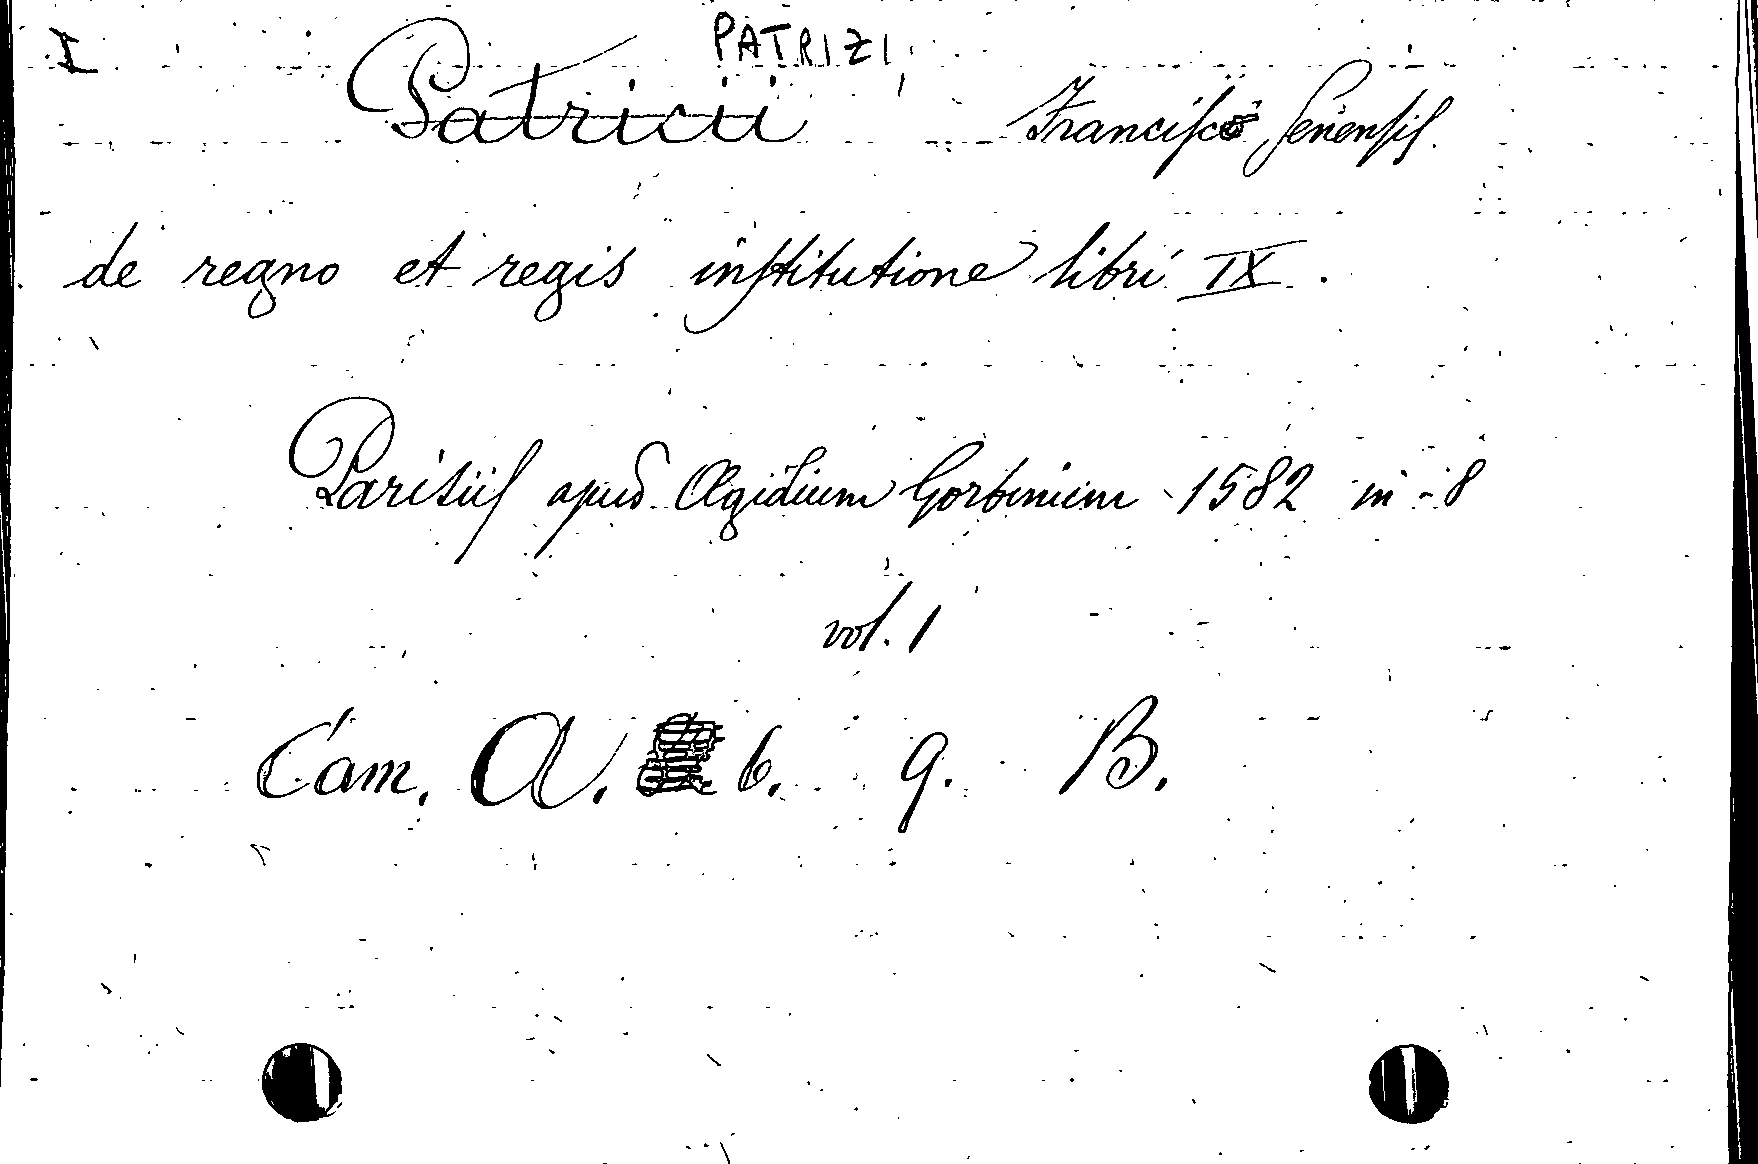 I PATRIZI,
Patricii Francisco Senensis.
de regno et regis institutione libri IX.
Parisiis apud Ægidium Gorbinium 1582 in-8
vol. 1
Cam. A. 6. 9. B.